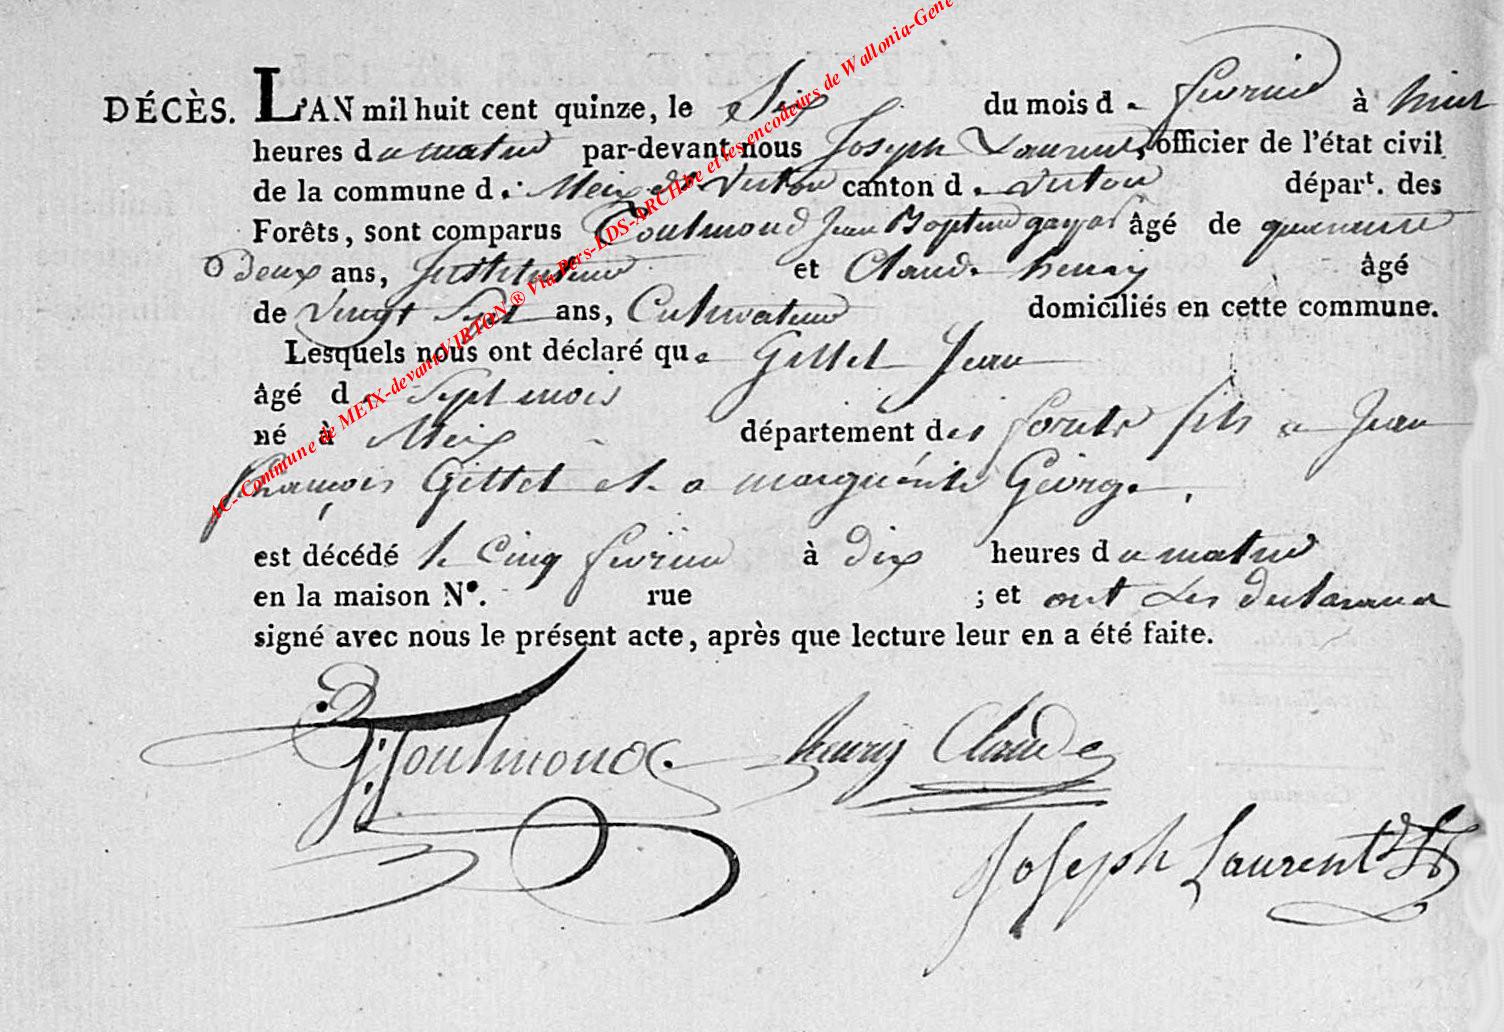 DÉCÈS. L'AN mil huit cent quinze, le Six du mois de fevrier à huit
heures du matin par-devant nous Joseph Laurent, officier de l'état civil
de la commune de Meix dt Virton canton de Virton départ. des
Forêts, sont comparus Toulmond Jean Baptiste âgé de quarante
deux ans, Instituteur et Claude henry âgé
de vingt Sept ans, Cultivateur domiciliés en cette commune.
Lesquels nous ont déclaré que Gillet Jean
âgé de Sept mois
né à Meix département des forets fils a Jean
françois Gillet et a marguérite George.
est décédé le Cinq fevrier à dix heures du matin
en la maison N°. rue ; et ont Les declarans
signé avec nous le présent acte, après que lecture leur en a été faite.
J:J:Toulmond henry Claude
Joseph Laurent
AC- Commune de MEIX-devant-VIRTON® Via Pers-LDS-ARCH.be et les encodeurs de Wallonia-Gene